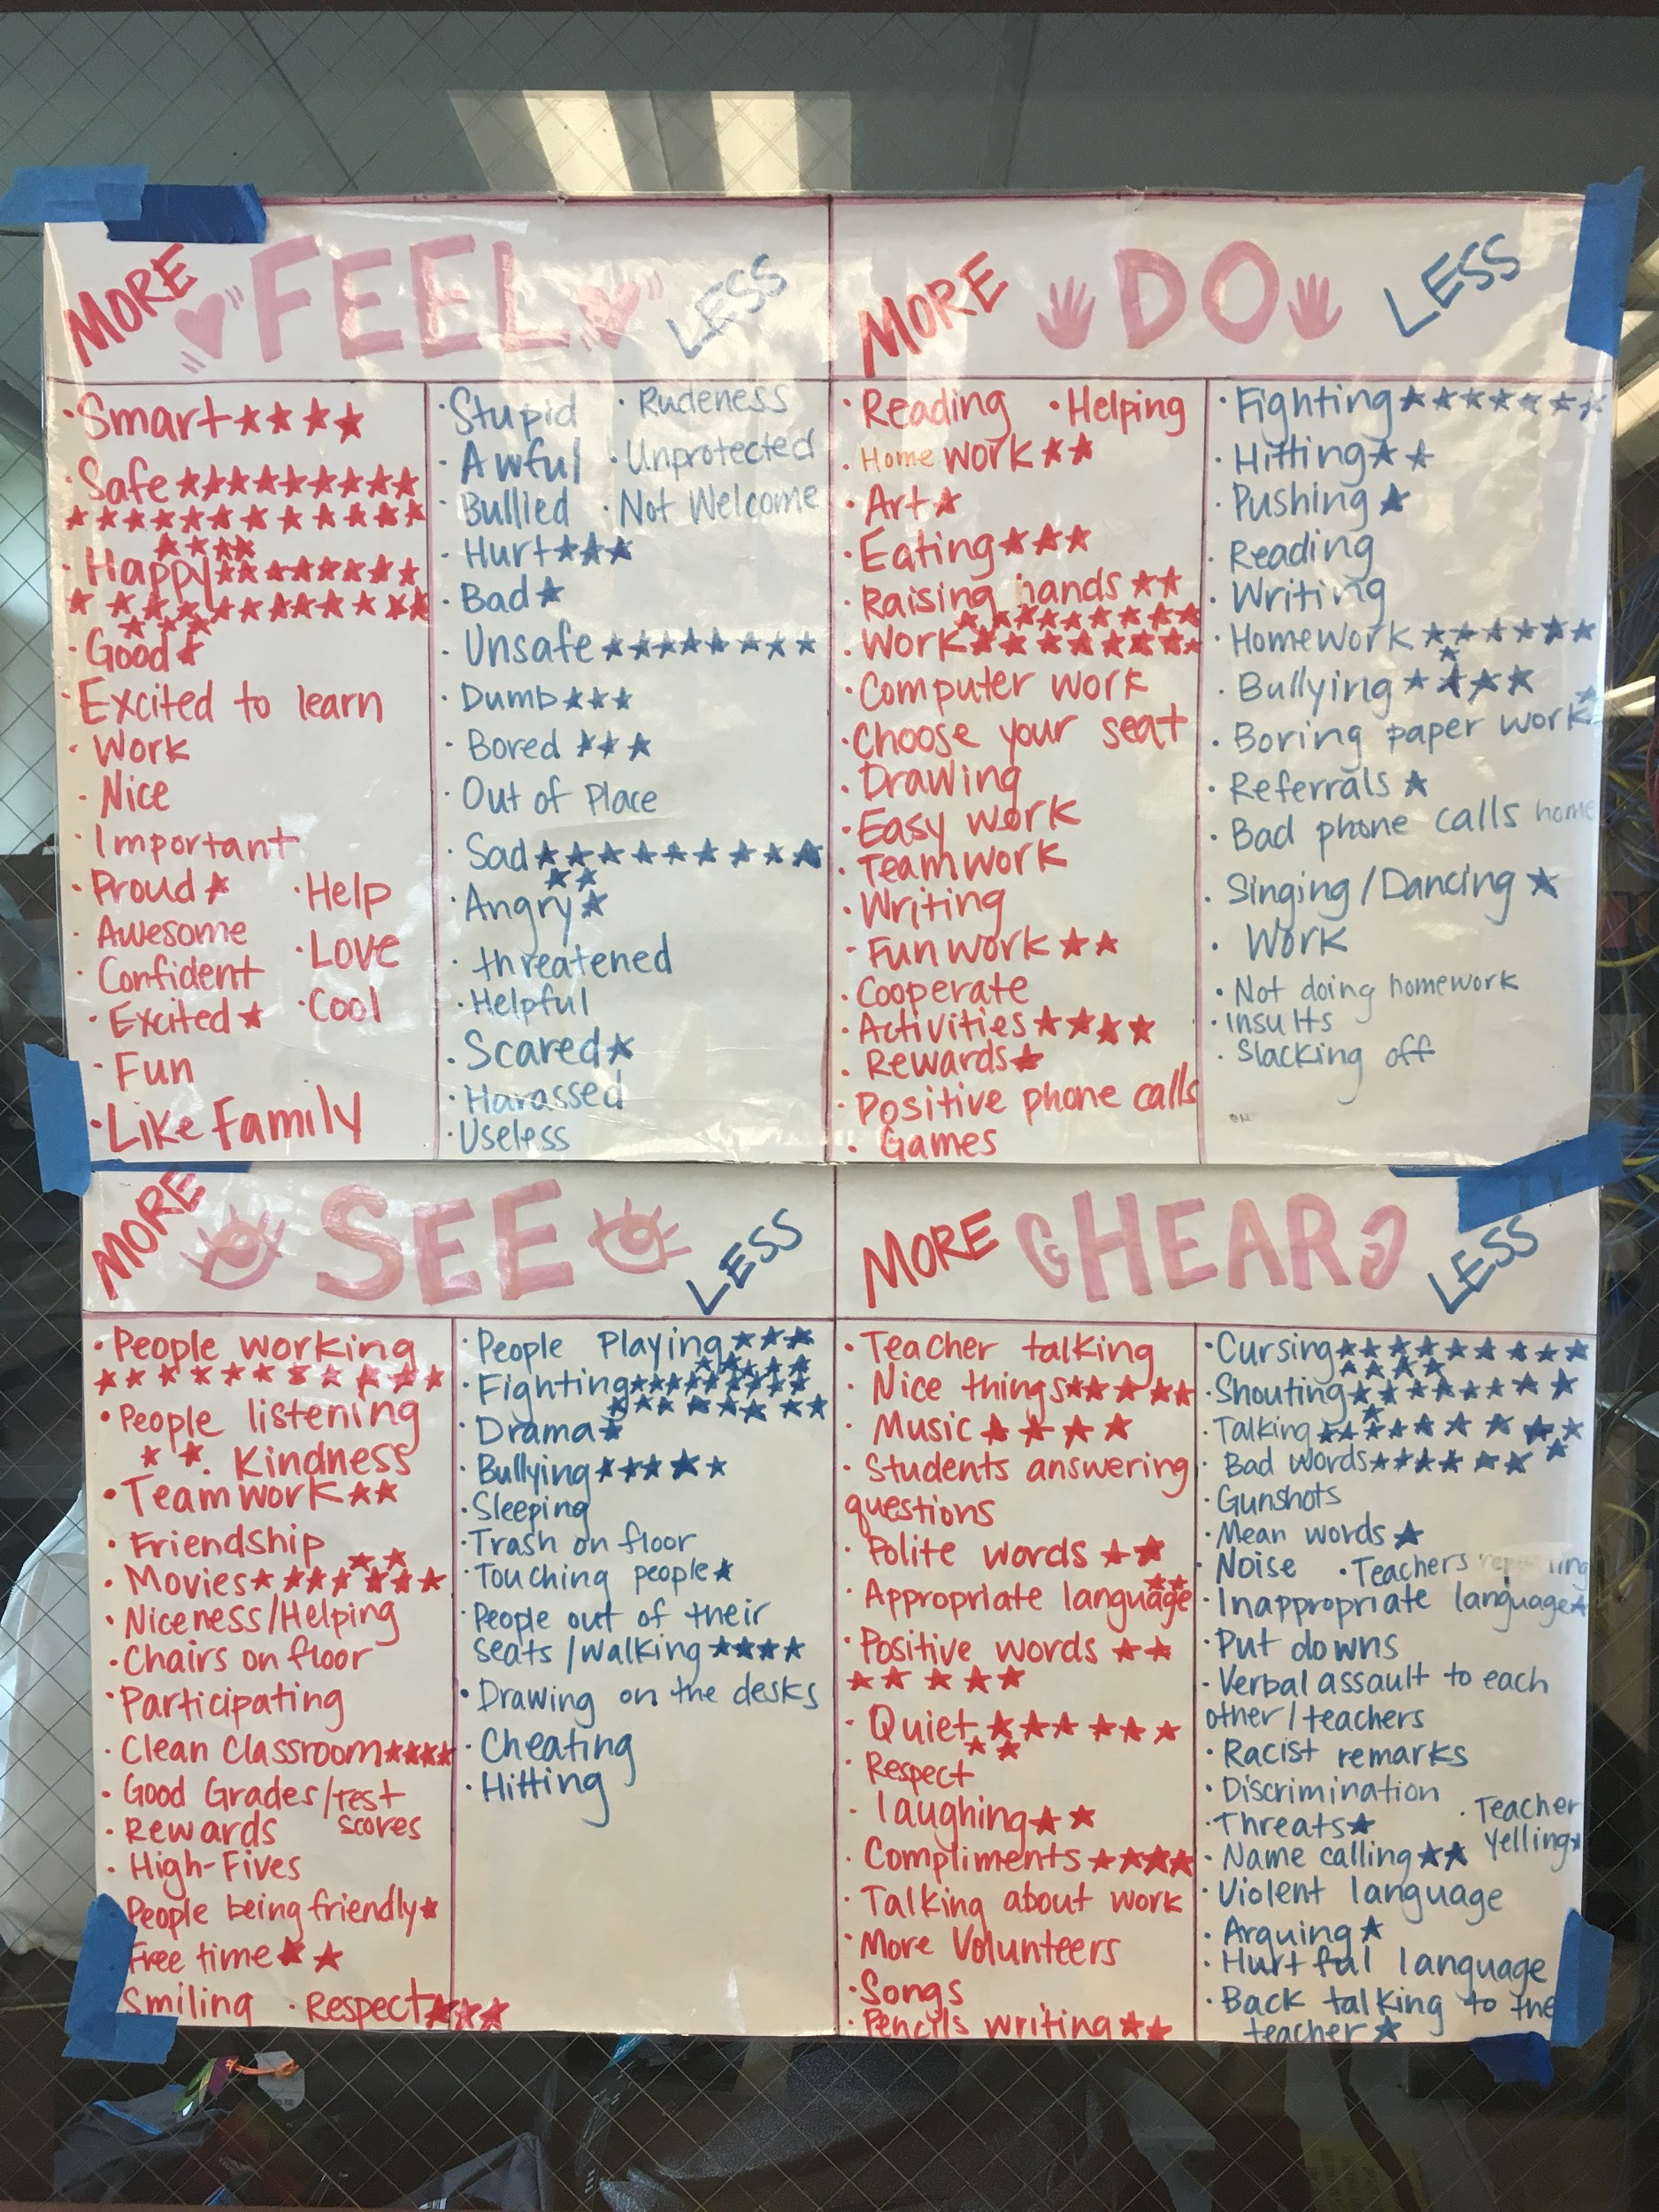 MORE FEEL LESS
• Smart ★★★★
• Safe ★★★★★★★★★
★★★★★★★★★★★★
★★★★
• Happy ★★★★★★★★
★★★★★★★★★★★★
★★★
• Good ★
• Excited to learn
• Work
• Nice
• Important
• Proud ★
• Awesome
• Confident
• Excited ★
• Help
• Love
• Cool
• Fun
• Like Family
• Stupid
• Awful
• Bullied
• Rudeness
• Unprotected
• Not Welcome
• Hurt ★★★
• Bad ★
• Unsafe ★★★★★★★★
• Dumb ★★★
• Bored ★★★
• Out of Place
• Sad ★★★★★★★★★
★★
• Angry ★
• threatened
• Helpful
• Scared ★
• Harassed
• Useless
MORE DO LESS
• Reading • Helping
• Home work ★★
• Art ★
• Eating ★★★
• Raising hands ★★
★★★★★★★★
• Work ★★★★★★★★
• Computer work
• Choose your seat
• Drawing
• Easy work
• Teamwork
• Writing
• Fun work ★★
• Cooperate
• Activities ★★★★
• Rewards ★
• Positive phone calls
• Games
• Fighting ★★★★★★★
• Hitting ★★
• Pushing ★
• Reading
• Writing
• Homework ★★★★★★
★
• Bullying ★★★★
• Boring paper work ★
• Referrals ★
• Bad phone calls home
• Singing/Dancing ★
• Work
• Not doing homework
• insults
• Slacking off
MORE SEE LESS
• People working
★★★★★★★★★★★
• People listening
★ ★
• Kindness
• Teamwork ★★
• Friendship
★★
• Movies ★★★★★★★
• Niceness/Helping
• Chairs on floor
• Participating
• Clean Classroom ★★★★
• Good Grades/Test
scores
• Rewards
• High-Fives
People being friendly ★
Free time ★★
Smiling • Respect ★★★
• People Playing ★★★
★★★★★
• Fighting ★★★★★★★★
★★★★★★★
• Drama ★
• Bullying ★★★★★
• Sleeping
• Trash on floor
• Touching people ★
• People out of their
seats/walking ★★★★
• Drawing on the desks
• Cheating
• Hitting
MORE HEAR LESS
• Teacher talking
• Nice things ★★★★★
• Music ★★★★
• Students answering
questions
• Polite words ★★
• Appropriate language
★★
• Positive words ★★
★★★★★
• Quiet ★★★★★★
★★
• Respect
• laughing ★★
• Compliments ★★★★
• Talking about work
• More Volunteers
• Songs
• Pencils writing ★★
• Cursing ★★★★★★★★★
★★★★
• Shouting ★★★★★★★★
★
• Talking ★★★★★★★★
• Bad words ★★★★★★★
★
• Gunshots
• Mean words ★
• Noise • Teachers
• Inappropriate language ★
• Put downs
• Verbal assault to each
other/teachers
• Racist remarks
• Discrimination
• Threats ★
• Teacher
yelling ★
• Name calling ★★
• Violent language
• Arguing ★
• Hurtful language
• Back talking to the
teacher ★